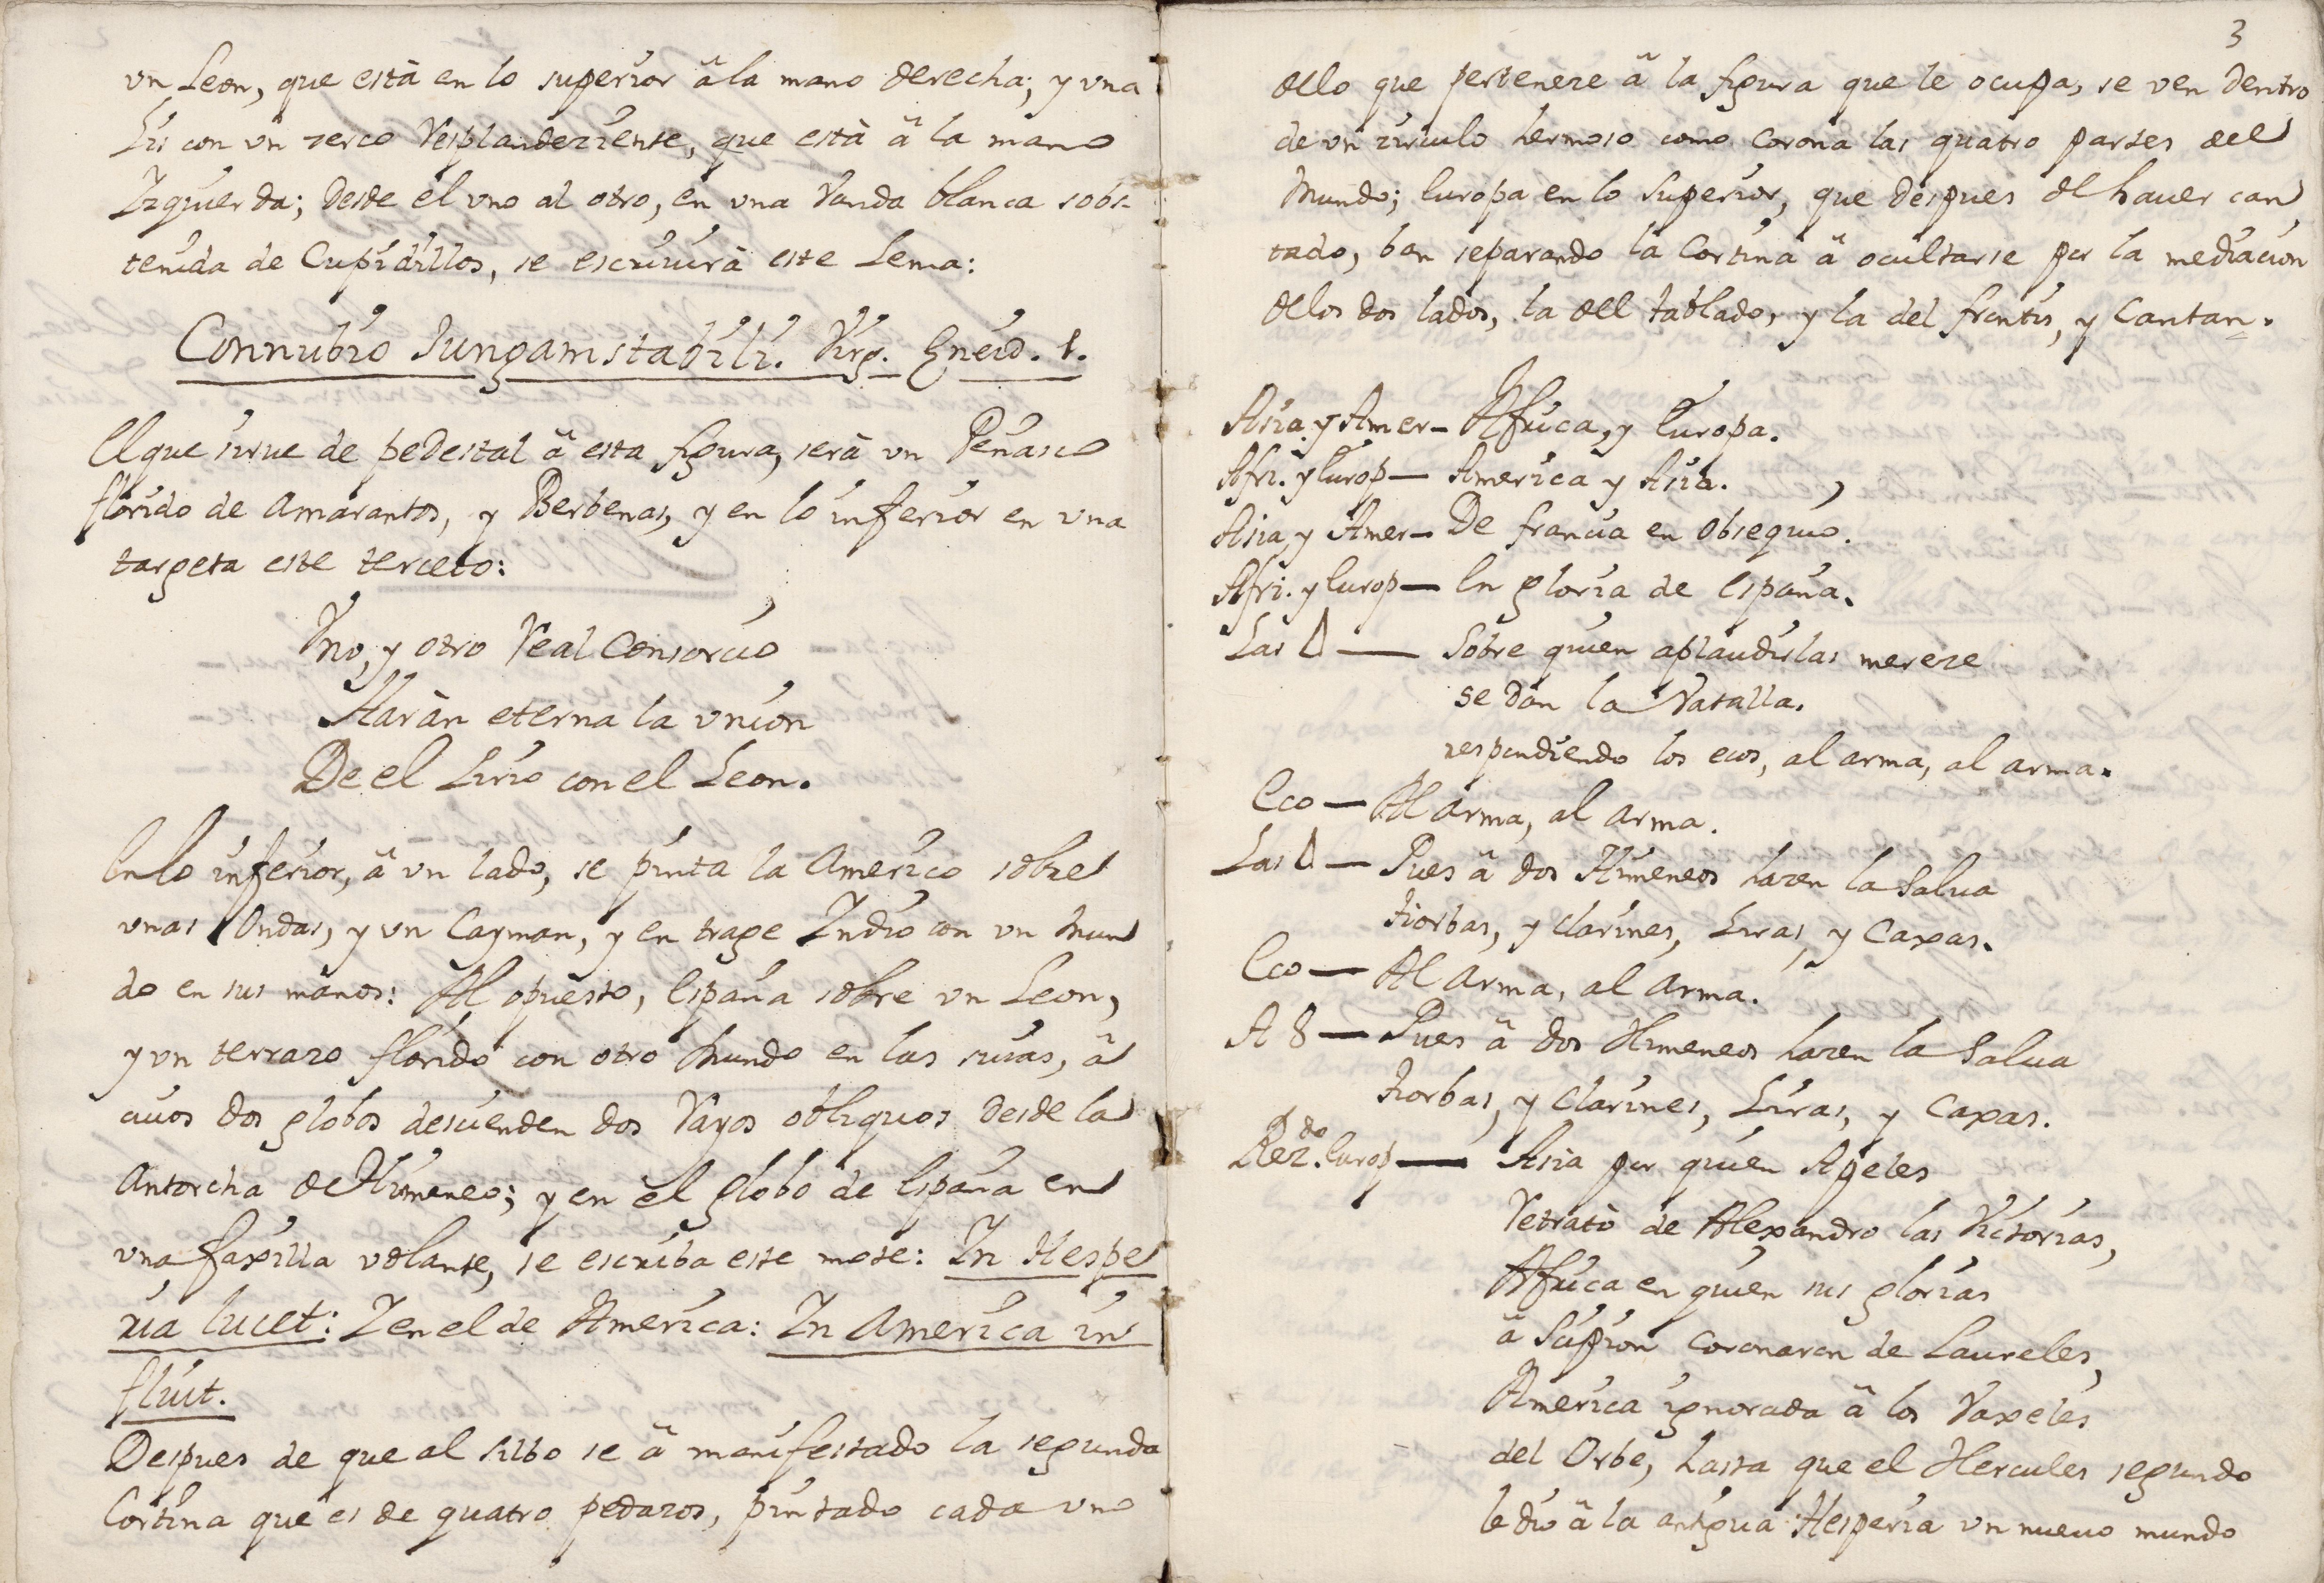 vn Leon, que està en lo superior â la mano derecha; y vna
Lis con vn zerco Resplandeziente, que està â la mano
Izquierda; desde el vno al otro, en vna Vanda blanca sobs-
tenida de Cupidillos, se escriuirà este Lema:
Connubio Jungam stabili. Virg. Eneid. 1.
El que sirue de pedestal â esta figura, serà vn Peñasco
florido de Amarantos, y Berbenas, y en lo inferior en vna
targeta este terceto:
Vno, y otro Real Consorcio
Haràn eterna la vnion
De el Lirio con el Leon.
En lo inferior, â vn lado, se pinta la America sobre
vnas Ondas, y vn Cayman, y en trage Indio con vn Mun
do en sus manos: Al opuesto, España sobre vn Leon,
y vn terrazo florido con otro Mundo en las suias, â
cuios dos globos descienden dos Rayos obliquos desde la
Antorcha de Himeneo; y en el globo de España en
vna faxilla volante, se escriba este mote: In Hespe
ria lucet: Y en el de America: In America in
fluit.
Despues de que al silbo se â manifestado la segunda
Cortina que es de quatro pedazos, pintado cada vno
3
dello que perteneze â la figura que le ocupa, se ven dentro
de vn circulo hermoso como Corona las quatro partes del
Mundo; Europa en lo Superior, que despues de hauer can
tado, ban separando la Cortina â ocultarse por la mediacion
de los dos lados, la del tablado, y la del frontis, y Cantan.
Asia y Amer- Africa, y Europa.
Afri. y Europ- America y Asia.
Asia y Amer- De francia en Obsequio.
Afri. y Europ- En gloria de España.
Las 4 - Sobre quien aplaudirlas mereze
se dan la Vatalla.
respondiendo los ecos, al arma, al arma.
Eco - Al arma, al arma.
Las 4 - Pues â dos Himeneos hazen la Salua
tiorbas, y clarines, Liras, y Caxas.
Eco - Al arma, al arma.
A 8 - Pues â dos Himeneos hazen la Salua
tiorbas, y Clarines, Liras, y Caxas.
Rez.do Europ - Asia por quien Apeles
Retratò de Alexandro las Victorias,
Africa en quien sus glorias
â Scipion Coronaron de Laureles,
America ignorada â los Vaxeles
del Orbe, hasta que el Hercules segundo
le dio â la antigua Hesperia vn nueuo mundo